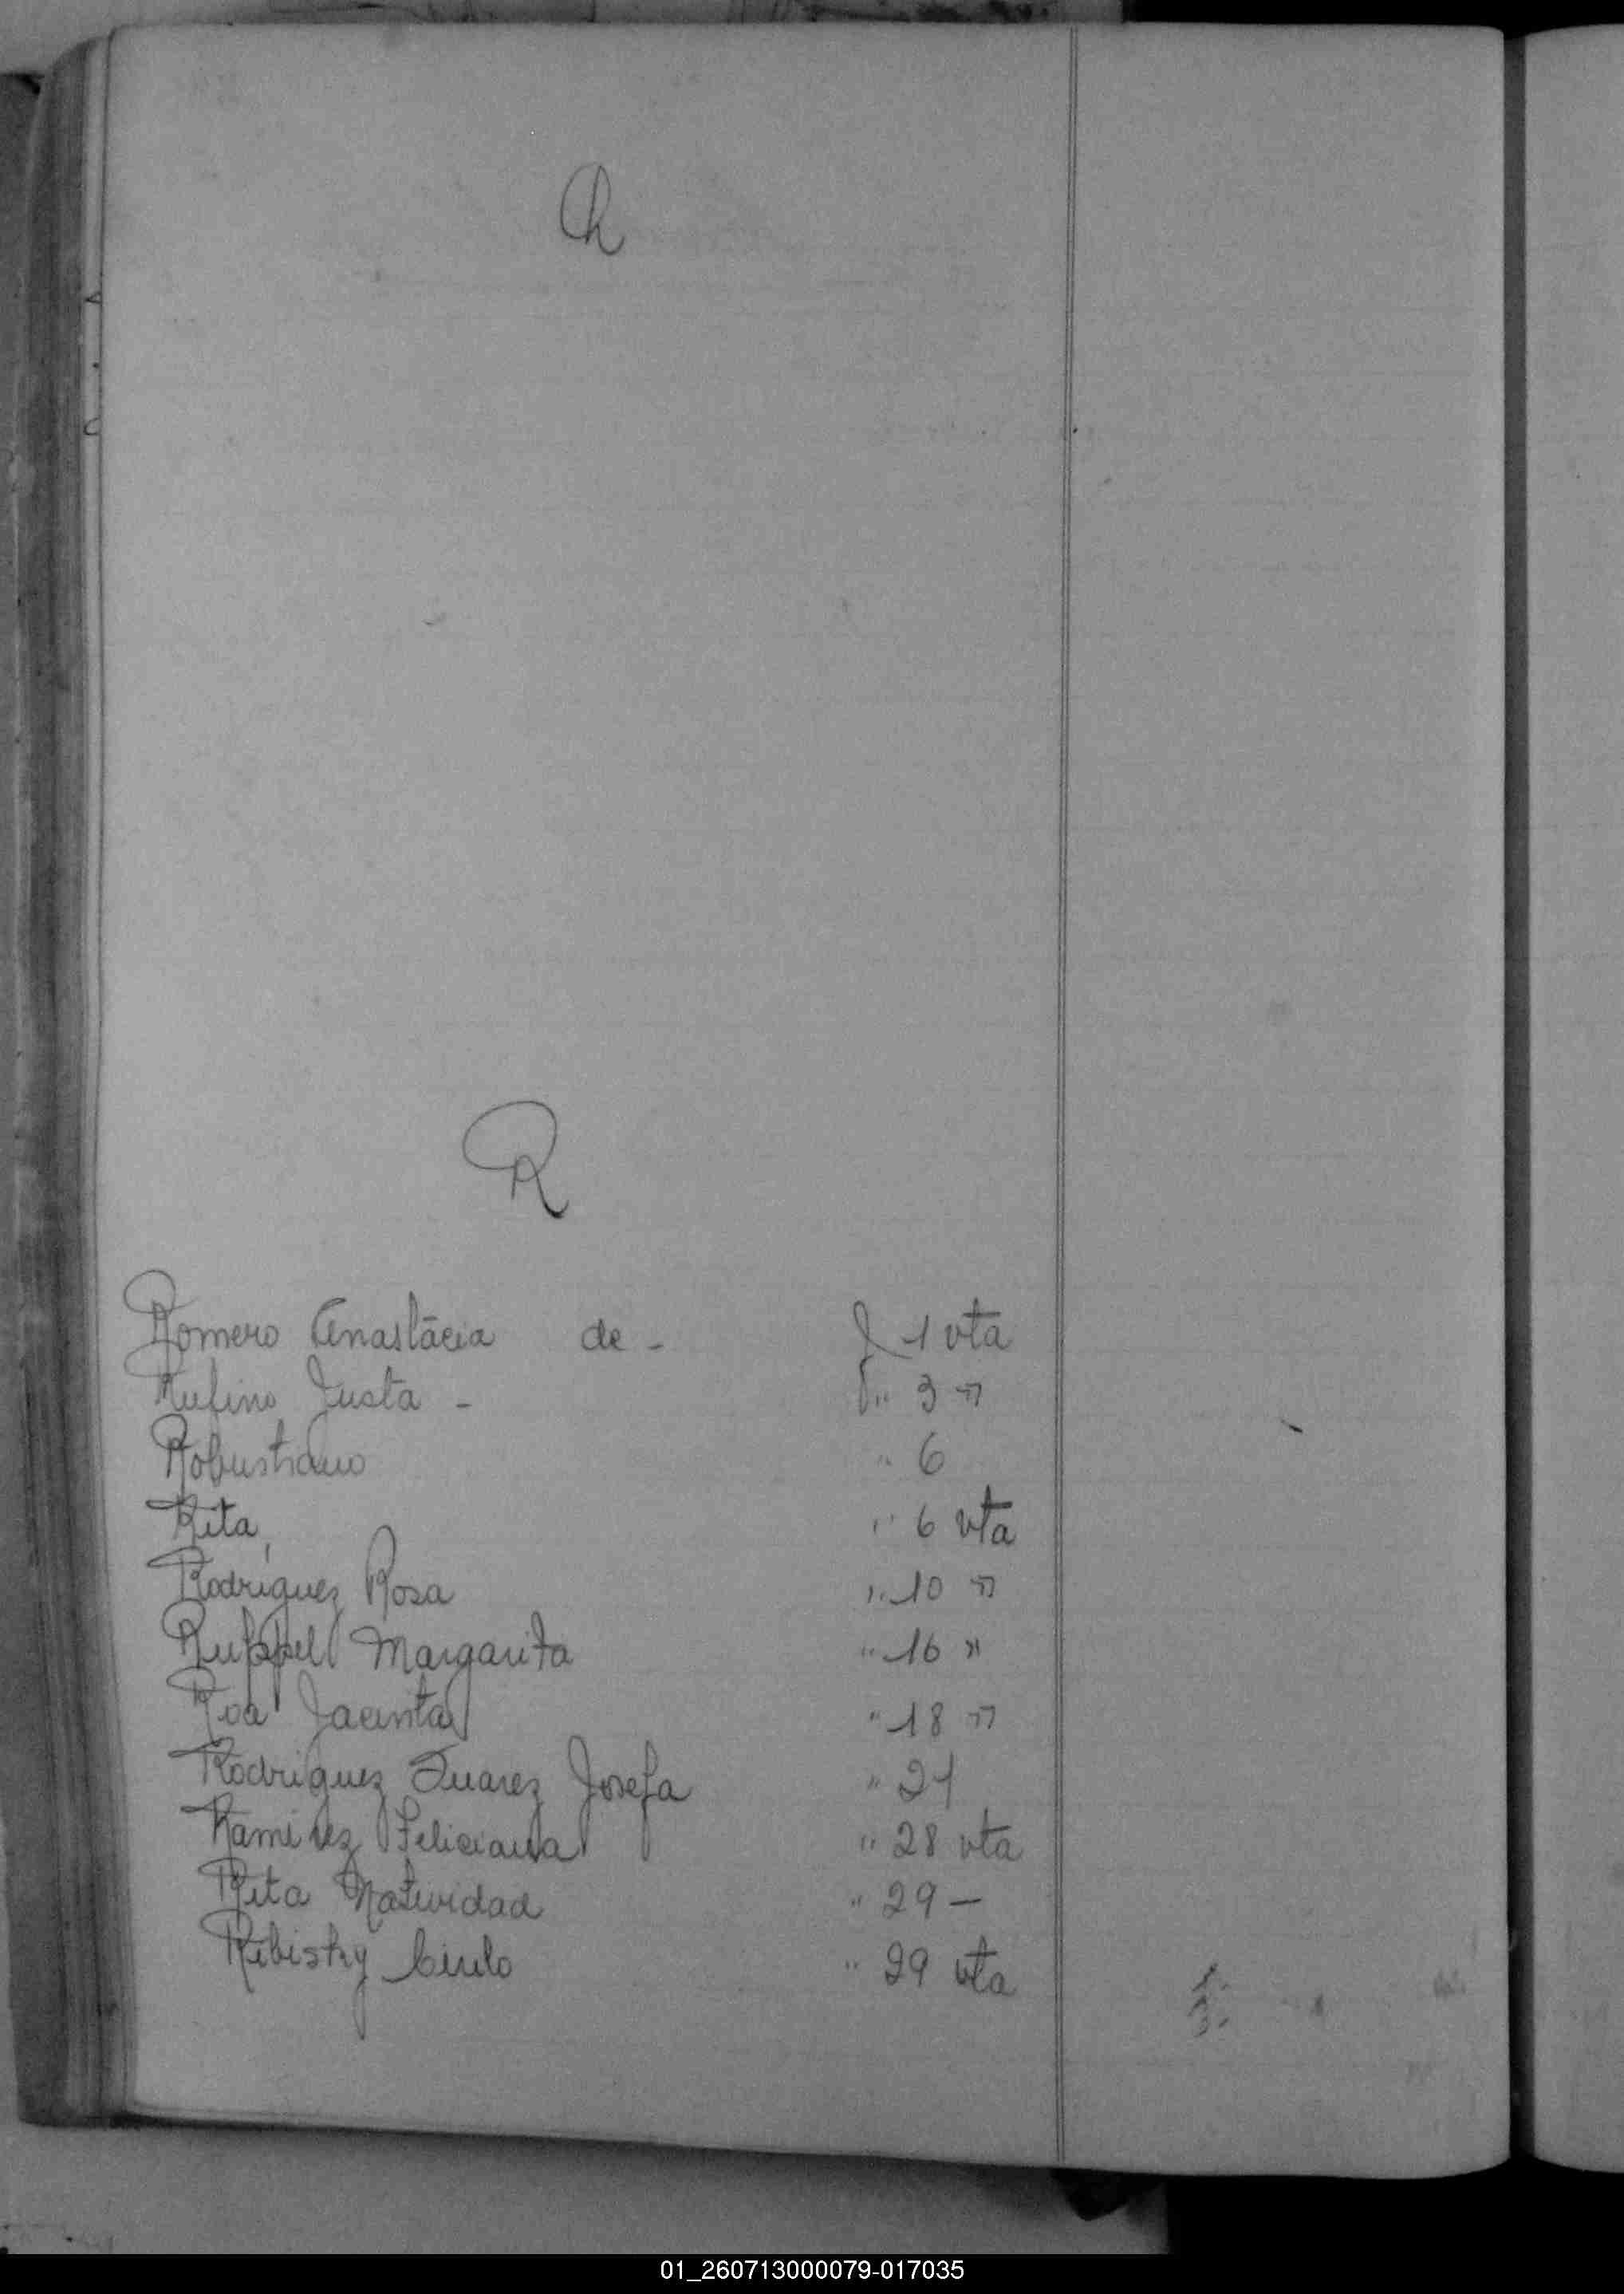 Ch
R
Romero Anastácia de - f 1 vta
Rufino Justa - " 3 "
Robustiano " 6
Rita, " 6 vta
Rodríguez Rosa " 10 "
Ruppel Margarita " 16 "
Roa Jacinta " 18 "
Rodriguez Juarez Josefa " 21
Ramirez Feliciana " 28 vta
Rita Natividad " 29 -
Ribisky Cirilo " 29 vta
01_260713000079-017035